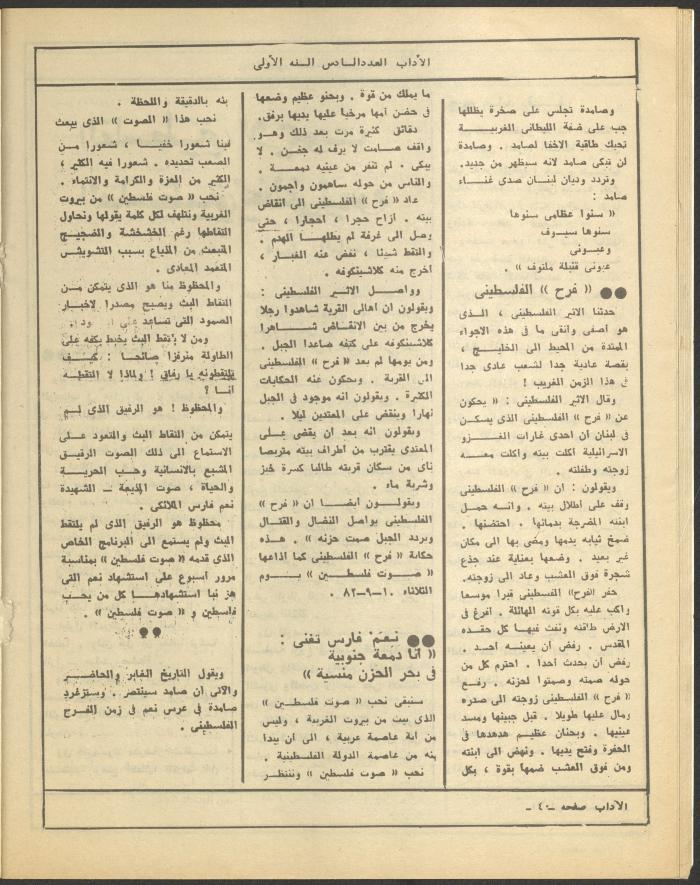 الآداب العدد السادس السنه الأولى
وصامدة تجلس على صخرة يظللها
جب على ضفة الليطانى الغربيـــة
تحيك طاقية الاخفا لصامد . وصامدة
لن تبكى صامد لانه سيظهر من جديد.
وتردد وديان لبنــان صدى غنــاء
صامد :
« سنوا عظامى سنوها
سنوها سيــوف
وعيــونى
عيونى قنبلة ملتوف » .
●● « فرح » الفلسطينى
حدثنا الاثير الفلسطينى ، الـذى
هو اصفى وانقى ما فى هذه الاجواء
الممتدة من المحيط الى الخليـــج ،
بقصة عادية جدا لشعب عادى جدا
فى هذا الزمن الغريب !
وقال الاثير الفلسطينى : « يحكون
عن « فرح » الفلسطينى الذى يسكــن
فى لبنان ان احدى غارات الغـــزو
الاسرائيلية أكلت بيته واكلت معـــه
زوجته وطفلته .
ويقولون : ان « فرح » الفلسطينى
وقف على اطلال بيته . وانــه حمــل
ابنته المضرجة بدمائها . احتضنها .
ضمخ ثيابه بدمها ومضى بها الى مكان
غير بعيد . وضعها بعناية عند جذع
شجرة فوق العشب وعاد الى زوجته.
حفر «فرح» الفلسطينى قبرا موسعا
وأكب عليه بكل قوته الهائلة . أفرغ فى
الارض طاقته ونفث فيهــا كل حقــده
المقدس . رفض أن يعينــه أحــد .
رفض أن يحدث أحدا . احترم كل من
حوله صمته وصمتوا لحزنه . رفــع
« فرح » الفلسطينى زوجته الى صدره
ومال عليها طويلا . قبل جبينها ومسد
عينيها . وبحنان عظيــم هدهدها فى
الحفرة وفتح يديها . ونهض الى ابنته
ومن فوق العشب ضمها بقوة ، بكل
ما يملك من قوة . وبحنو عظيم وضعها
فى حضن أمها مرخيا عليها يديها برفق.
دقائق كثيرة مرت بعد ذلك وهــو
واقف صامــت لا يرف له جفــن . لا
يبكى . لم تنفر من عينيه دمعــة .
والناس من حوله ساهمون واجمون .
عاد « فرح » الفلسطينى الى انقاض
بيته . ازاح حجرا ، احجارا ، حتى
وصل الى غرفة لم يطلهــا الهدم .
والتقط شيئا ، نفض عنه الغبــار ،
اخرج منه كلاشينكوفه .
وواصــل الاثيــر الفلسطينى :
ويقولون ان اهالى القرية شاهدوا رجلا
يخرج من بين الانقــاض شـــاهرا
كلاشينكوفه على كتفه صاعدا الجبل .
ومن يومها لم يعد « فرح » الفلسطينى
الى القرية . ويحكون عنه الحكايات
الكثيرة . ويقولون انه موجود فى الجبل
نهارا وينقض على المعتدين ليلا .
ويقولون انه بعد ان يقضى علــى
المعتدى يقترب من اطراف بيته متربصا
ناى من سكان قريته طالبا كسرة خبز
وشربة ماء .
ويقولــون أيضــا ان « فرح »
الفلسطينى يواصل النضال والقتــال
ويردد الجبل صمت حزنه » . هــذه
حكاية « فرح » الفلسطينى كما اذاعها
« صــوت فلسطــين » يــــوم
الثلاثاء ١٠-٩-٨٢ .
●● نعم فارس تغنى :
« أنا دمعة جنوبية
فى بحر الحزن منسية »
سنبقى نحب « صوت فلسطــين »
الذى يبث من بيروت الغربية ، وليس
من اية عاصمة عربية ، الى أن يبدا
بثه من عاصمة الدولة الفلسطينية .
نحب « صوت فلسطين » وننتظــر
بثه بالدقيقة واللحظة .
نحب هذا « الصوت » الذى يبعث
فينا شعورا خفيــا ، شعورا مــن
الصعب تحديده . شعورا فيه الكثير ،
الكثير من العزة والكرامة والانتماء .
نحب « صوت فلسطين » من بيروت
الغربية ونتلهف لكل كلمة يقولها ونحاول
التقاطها رغم الخشخشة والضجيــج
المنبعث من المذياع بسبب التشويــش
المتعمد المعادى .
والمحظوظ منا هو الذى يتمكن مــن
التقاط البث ويصبح مصدرا لاخبــار
الصمود التى تساعد على
ومن لا يلتقط البث يخبط بكفه على
الطاولة منرفزا صائحــا : كيــف
تلتقطونه يا رفاق ! ولماذا لا التقطه
أنا ؟
والمحظوظ ! هو الرفيق الذى لــم
يتمكن من التقاط البث والتعود علــى
الاستماع الى ذلك الصوت الرقيــق
المشبع بالانسانية وحــب الحريـــة
والحياة ، صوت المذيعة ـ الشهيدة
نعم فارس الملائكى .
محظوظ هو الرفيق الذى لم يلتقط
البث ولم يستمع الى البرنامج الخاص
الذى قدمه « صوت فلسطين » بمناسبة
مرور أسبوع على استشهاد نعم التى
هز نبا استشهادهــا كل من يحــب
فلسطين و « صوت فلسطين » .
●●
ويقول التاريخ الغابر والحاضــر
والآتى أن صامد سينتصر . وستزغرد
صامدة فى عرس نعم فى زمن الفــرح
الفلسطينى .
الآداب صفحه -٤٠-